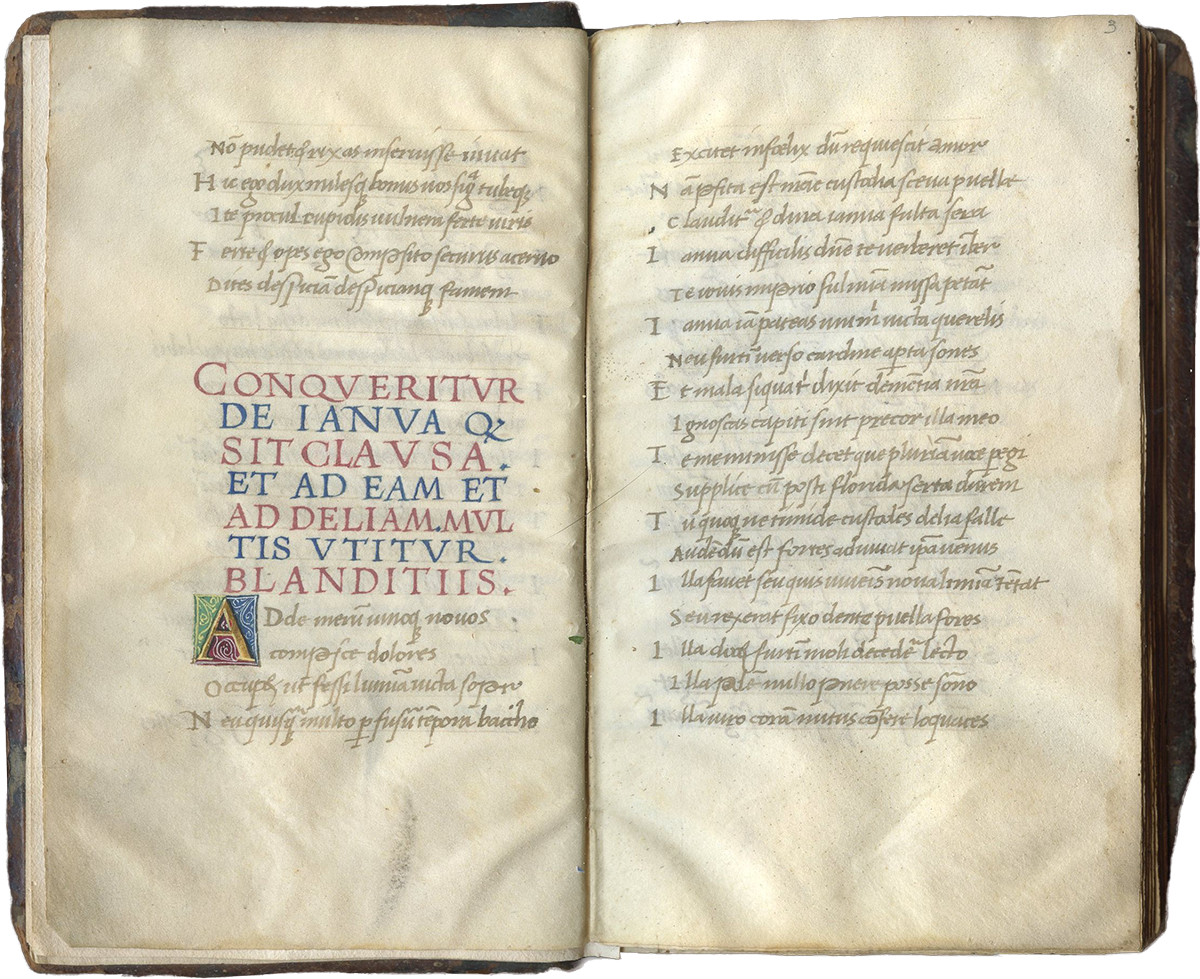 Nō pudet & rixas inseruisse iuuat
Hic ego dux milesq; bonus uos sigā tubeq;
Ite procul cupidis uulnera ferte uiris
Ferte & opes ego composito securus aceruo
Dites despiciā despiciamq; famem
CONQVERITVR
DE IANVA Q
SIT CLAVSA.
ET AD EAM ET
AD DELIAM. MVL
TIS VTITVR.
BLANDITIIS.
ADde merū uinoq; nouos
compesce dolores
Occupet ut fessi lumīa uicta sopor
Neu quisq̄ multo pfusū tēpora baccho
3
Excitet infœlix dū requiescit amor
Nā posita est nr̄ae custodia sceua puelle
Clauditr & dura ianua fulta sera
Ianua difficilis dn̄e te uerberet iber
Te iouis imperio fulmīa missa petāt
Ianua iā pateas uni m uicta querelis
Neu furtī uerso cardine apta sones
Et mala siqua t dixit demētia nr̄a
Ignoscas capiti sint precor illa meo
Te meminisse decet que plurīa uoce pegi
Supplice cū posti florida serta darem
Tu quoq; ne timide custodes delia falle
Audēdū est fortes adiuuat ipsa uenus
Illa fauet seu quis iuuenis noua limīa tētat
Seu reserat fixo dente puella fores
Illa docet furtī molli decedē lecto
Illa pedē nullo ponere posse sōno
Illa uiro corā nutus cōferre loquaces